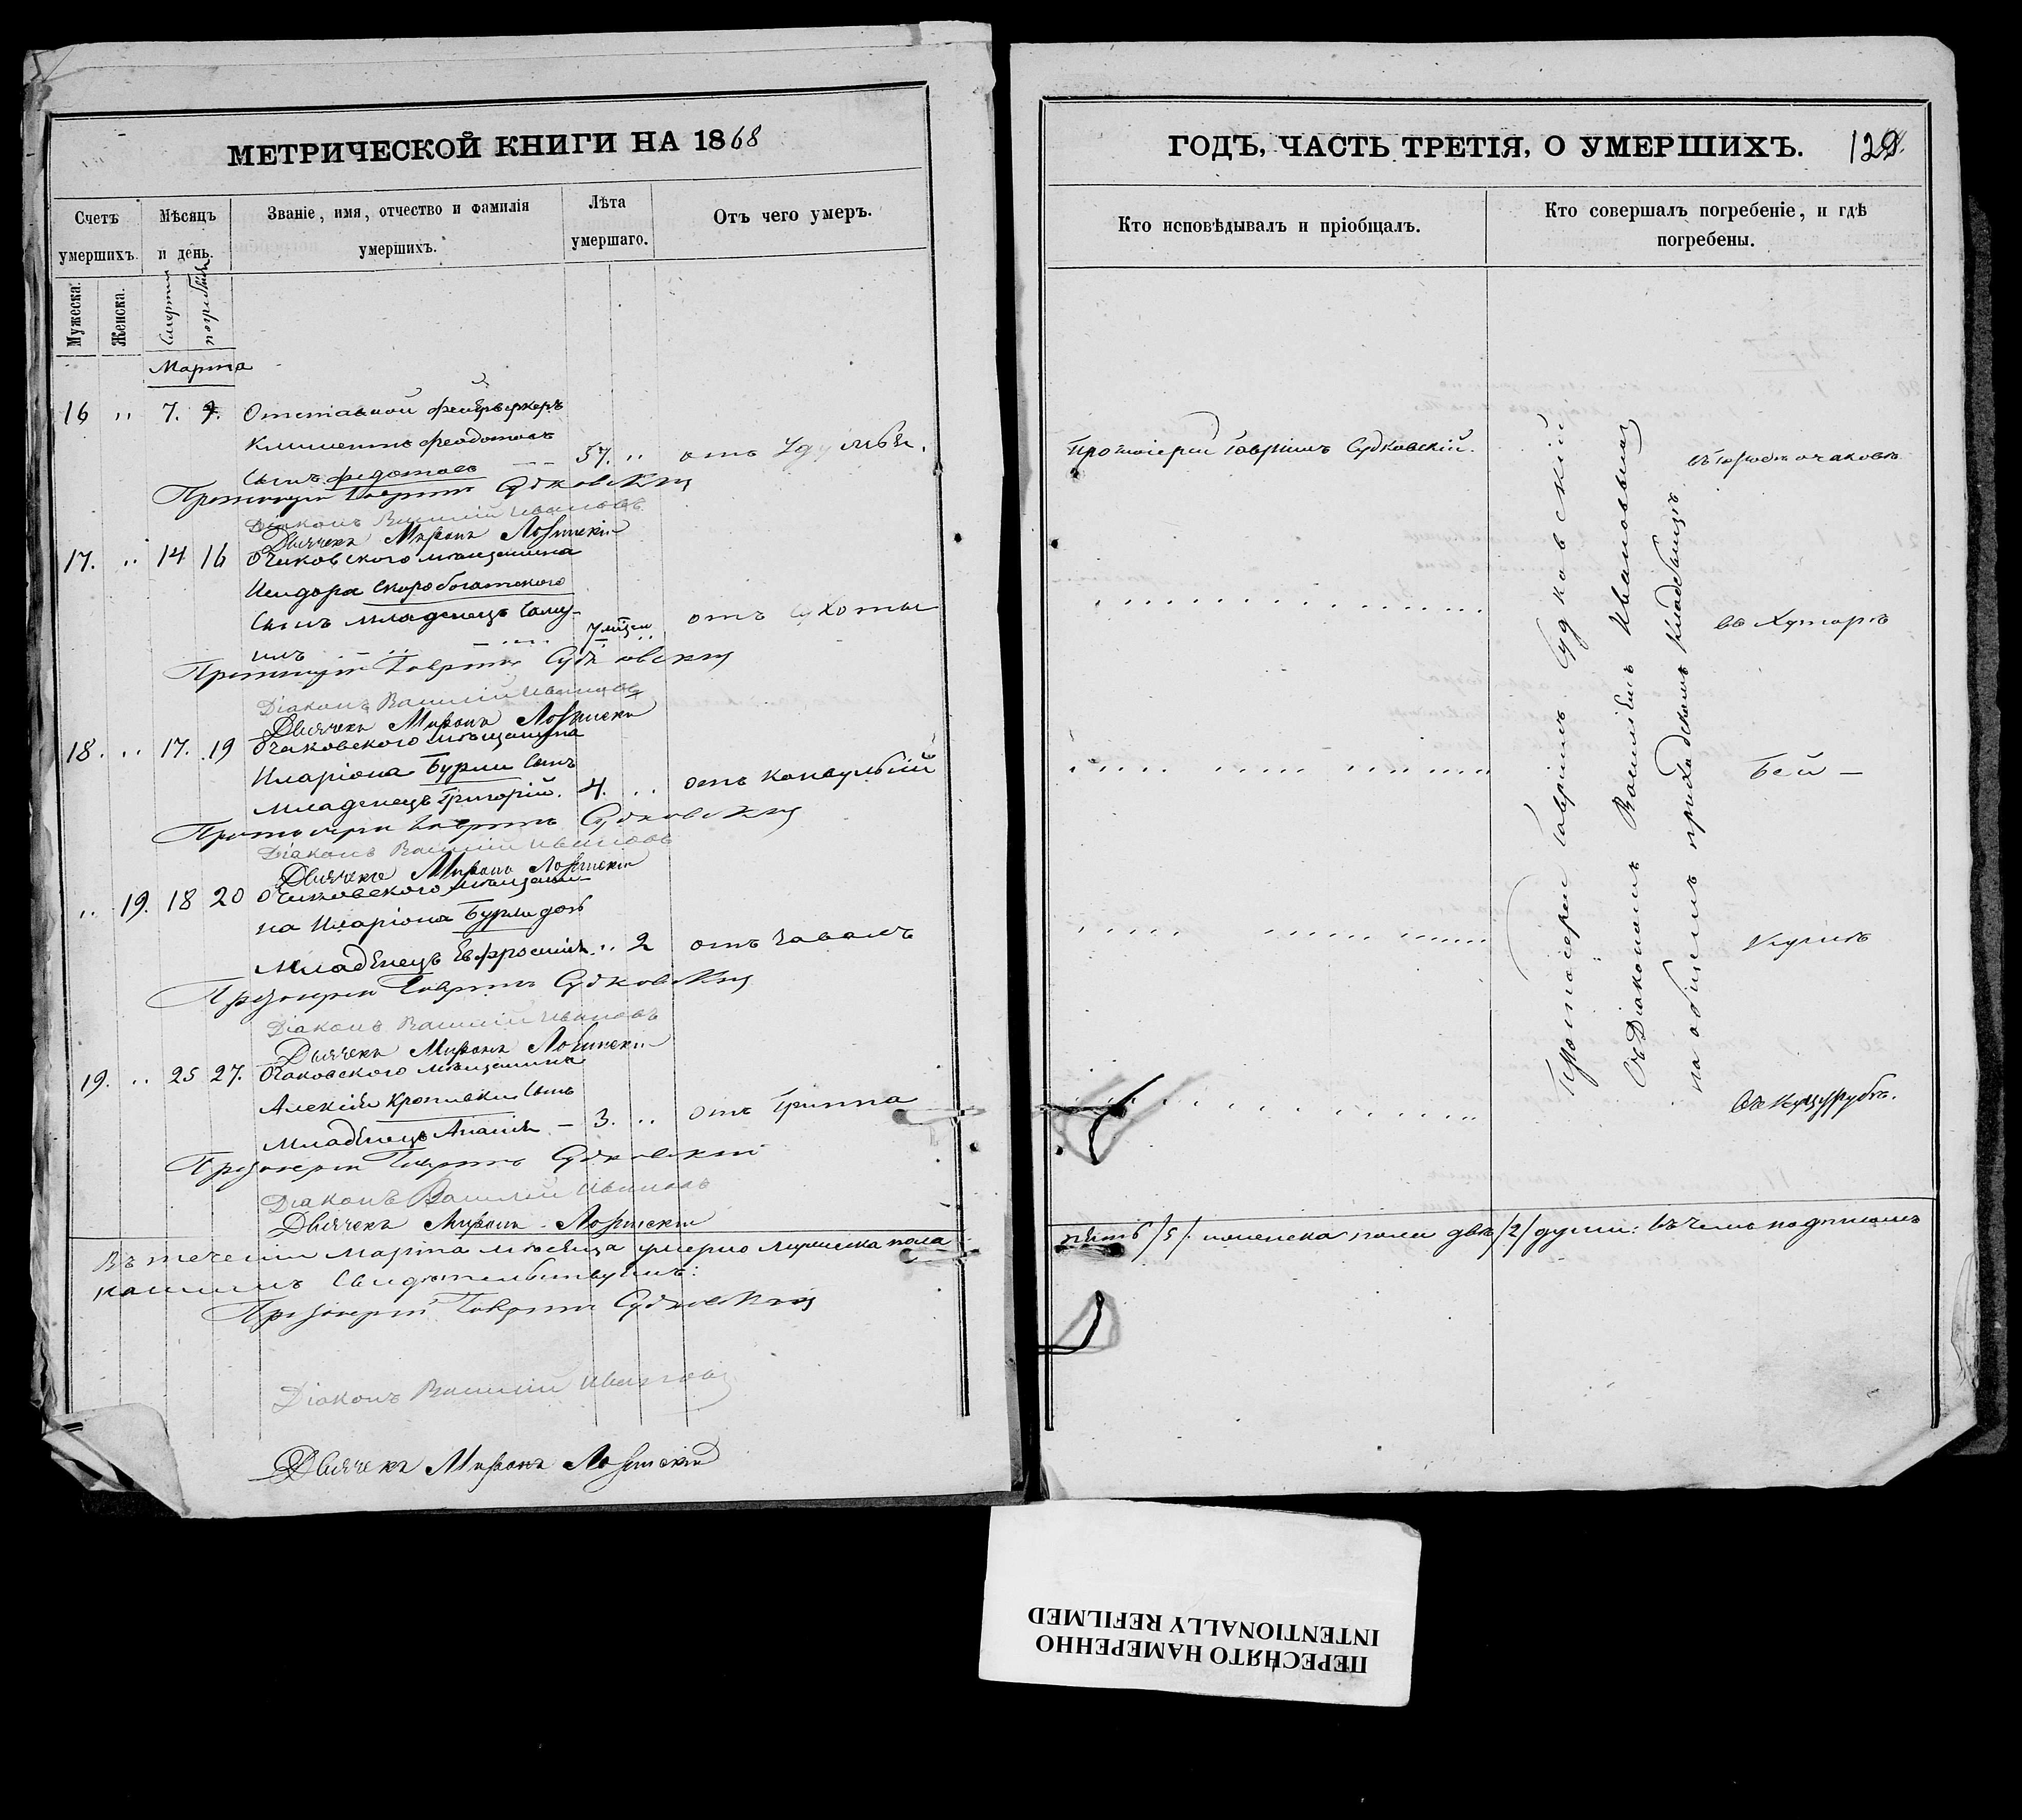 МЕТРИЧЕСКОЙ КНИГИ НА 1868
Счетъ умершихъ.
Мѣсяцъ и день.
Званіе, имя, отчество и фамилія умершихъ.
Лѣта умершаго.
Отъ чего умеръ.
Мужеска.
Женска.
Смерти
погребенія
Марта
16 " 7. 9. Отставной фейерверкеръ
Климентъ Феодотовъ
Сынъ Федотовъ 57. " отъ
Протоіерей Гавріилъ Судковскій
Діаконъ Василій Ивановъ
Дьячекъ Миронъ
17. " 14 16 Очаковского мѣщанина
Исидора Скоробогатского
Сынъ младенецъ Саму-
илъ 7 мѣсец " отъ сухоты
Протоіерей Гавріилъ Судковскій
Діаконъ Василій Ивановъ
Дьячекъ Миронъ
18. " 17. 19 Очаковского мѣщанина
Иларіона Бурли сынъ
младенецъ Григорій. 4. " отъ конвульсій
Протоіерей Гавріилъ Судковскій
Діаконъ Василій Ивановъ
Дьячекъ Миронъ
" 19. 18 20 Очаковского мѣщани-
на Иларіона Бурли дочь
младенецъ Евфросинія " 2 отъ
Протоіерей Гавріилъ Судковскій
Діаконъ Василій Ивановъ
Дьячекъ Миронъ
19. " 25 27. Очаковского мѣщанина
Алексія Кропивки сынъ
младенецъ Ананія - 3. " отъ Гриппа
Протоіерей Гавріилъ Судковскій
Діаконъ Василій Ивановъ
Дьячекъ Миронъ
Въ теченіи Марта мѣсяца умерло мужеска пола
Свидѣтельствуемъ:
Протоіерей Гавріилъ Судковскій
Діаконъ Василій Ивановъ
Дьячекъ Миронъ
ГОДЪ, ЧАСТЬ ТРЕТІЯ, О УМЕРШИХЪ.
Кто исповѣдывалъ и пріобщалъ.
Кто совершалъ погребеніе, и гдѣ погребены.
Протоіерей Гавріилъ Судковскій.
Протоіерей Гавріилъ Судковскій
Съ Діакономъ Василіемъ Ивановымъ
на общемъ приходскомъ кладбищѣ
въ городѣ Очаковѣ
въ Хуторѣ
Бей -
въ Куцурубѣ.
пять /5/. женска пола двѣ /2/ души: въ чемъ подписомъ
ПЕРЕСНЯТО НАМЕРЕННО
INTENTIONALLY REFILMED